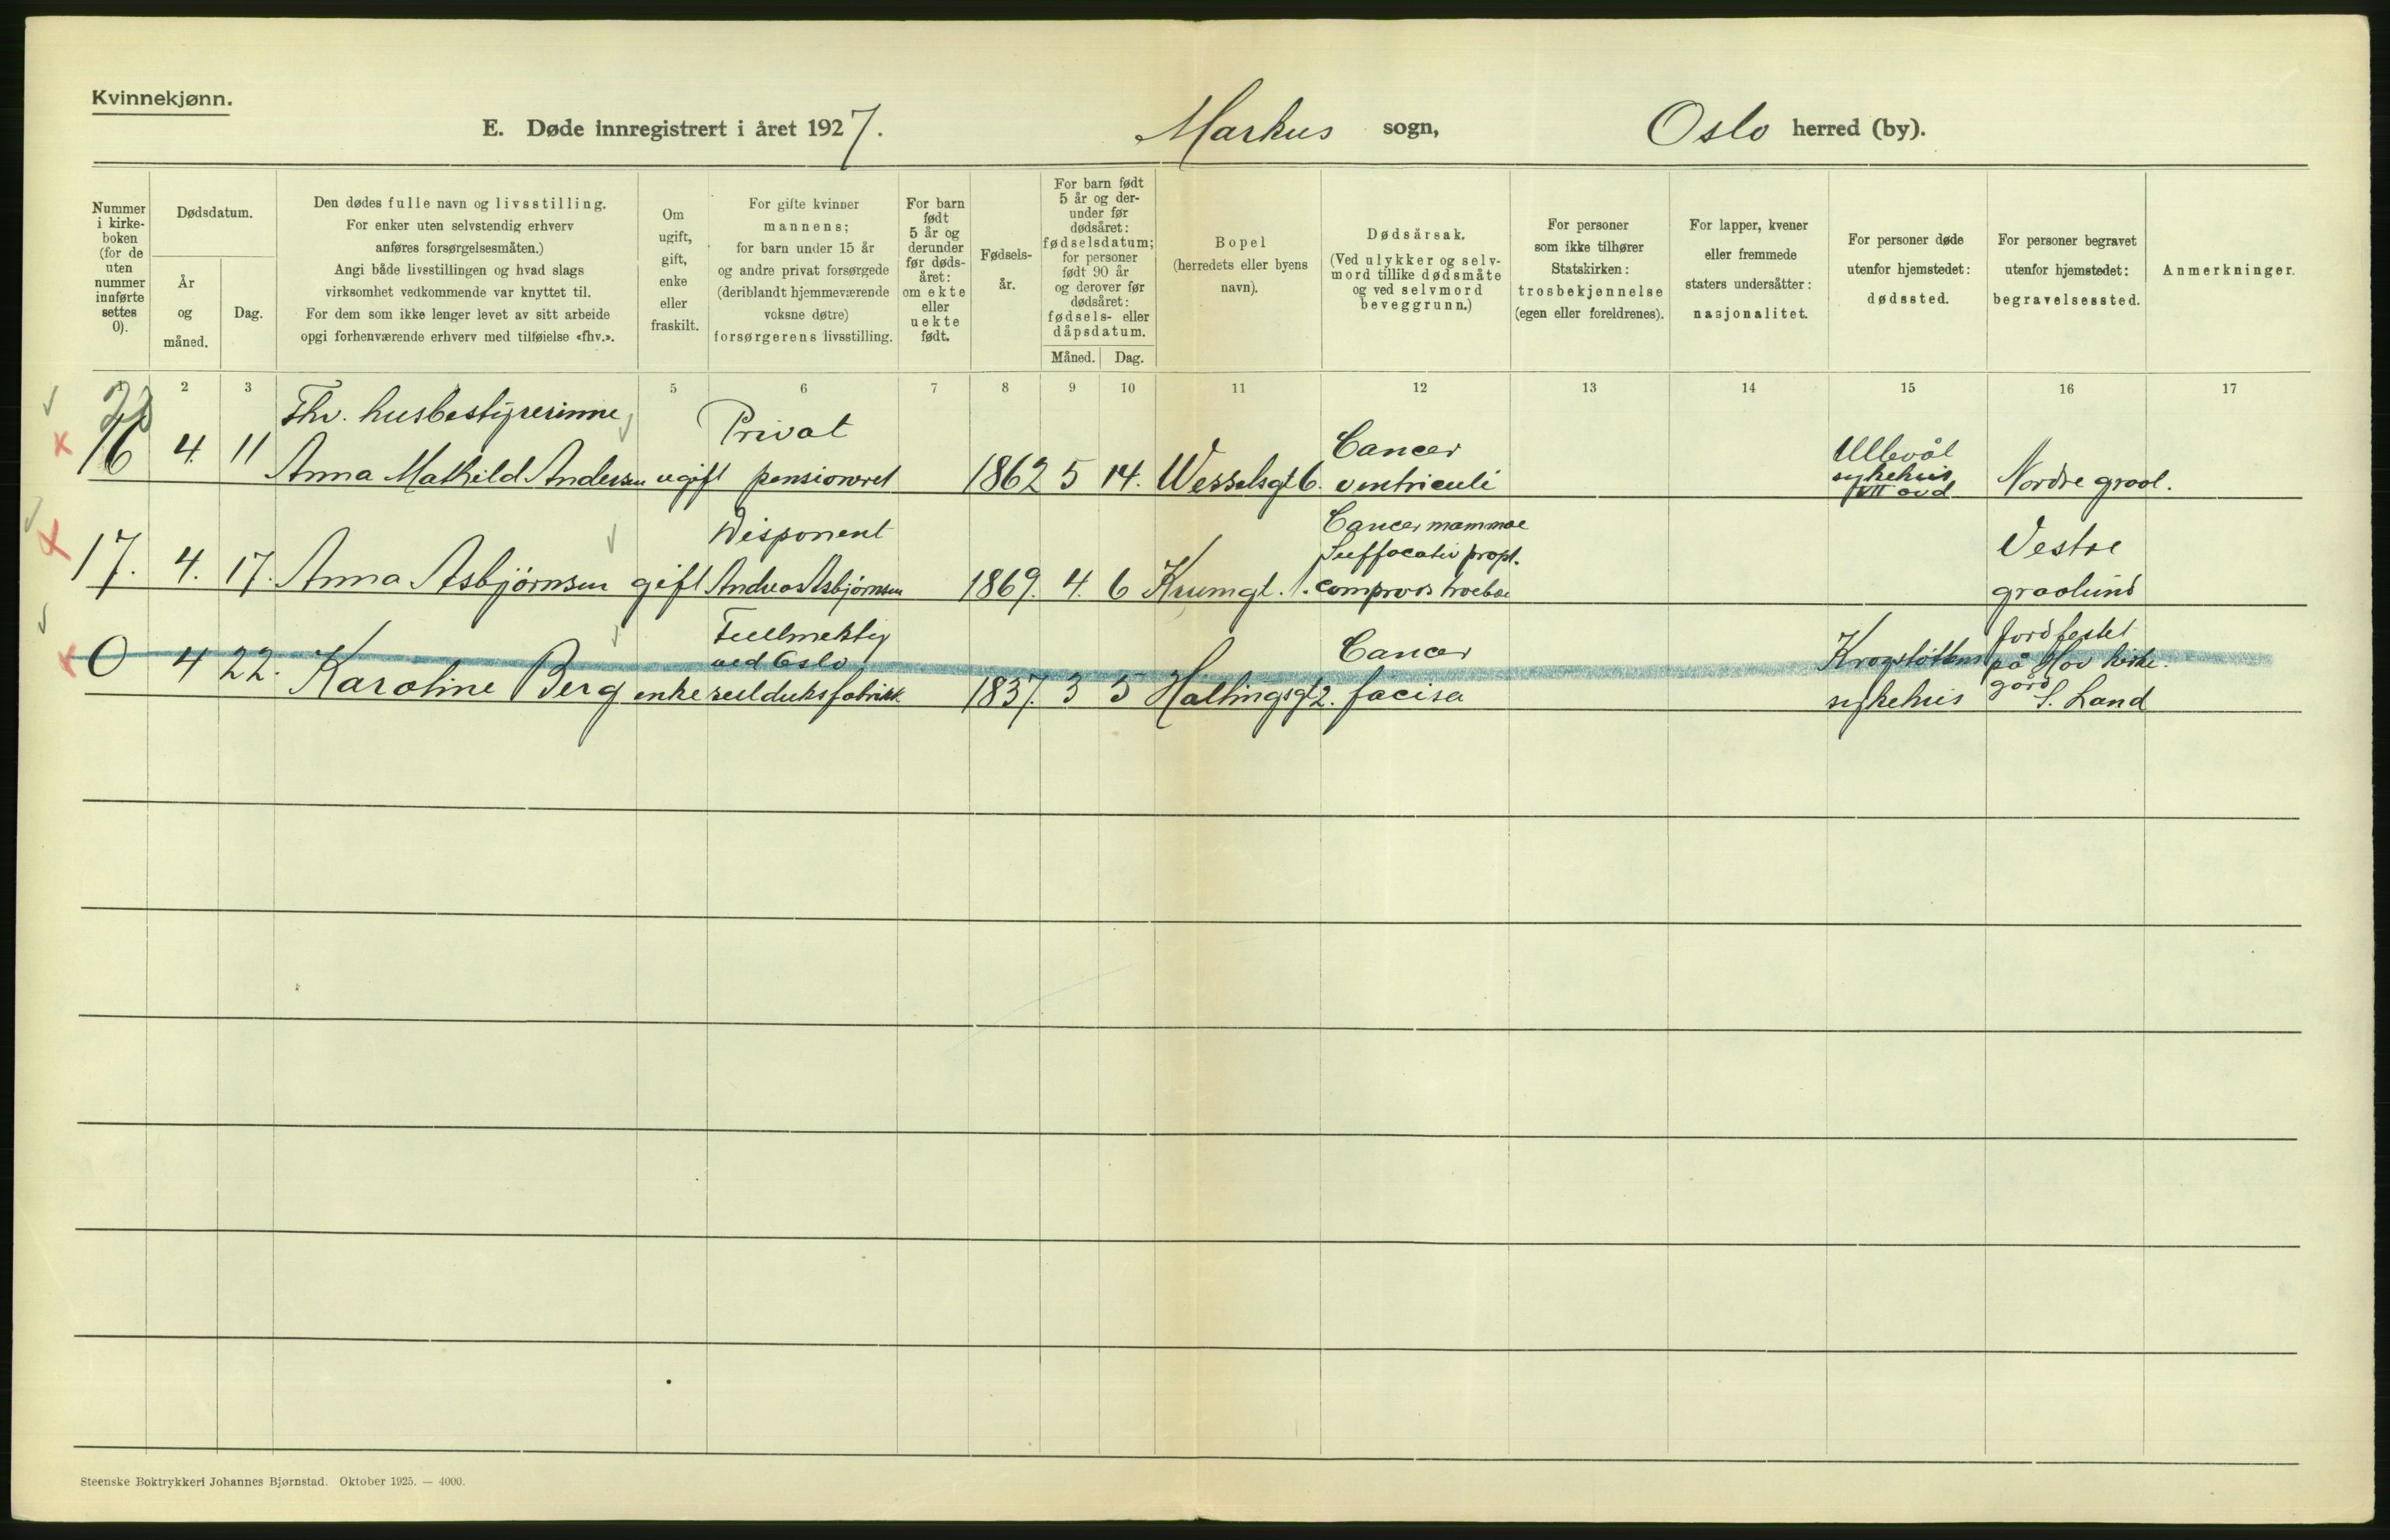 Kvinnekjønn.
E. Døde innregistrert i året 1927. Markus sogn, Oslo herred (by).
Nummer i kirke- boken (for de uten nummer innførte settes 0).
Dødsdatum.
År og måned.
Dag.
Den dødes fulle navn og livsstilling.
For enker uten selvstendig erhverv
anføres forsørgelsesmåten.)
Angi både livsstillingen og hvad slags
virksomhet vedkommende var knyttet til.
For dem som ikke lenger levet av sitt arbeide
opgi forhenværende erhverv med tilføielse «fhv.».
Om ugift, gift, enke eller fraskilt.
For gifte kvinner
mannens;
for barn under 15 år
og andre privat forsørgede
(deriblandt hjemmeværende
voksne døtre)
forsørgerens livsstilling.
For barn født 5 år og derunder før døds- året: om ekte eller uekte født.
Fødsels- år.
For barn født
5 år og der-
under før
dødsåret:
fødselsdatum;
for personer
født 90 år
og derover før
dødsåret:
fødsels- eller
dåpsdatum.
Måned. Dag.
Bopel
(herredets eller byens
navn).
Dødsårsak.
(Ved ulykker og selv-
mord tillike dødsmåte
og ved selvmord
beveggrunn.)
For personer
som ikke tilhører
Statskirken:
trosbekjennelse
(egen eller foreldrenes).
For lapper, kvener
eller fremmede
staters undersåtter:
nasjonalitet.
For personer døde
utenfor hjemstedet:
dødssted.
For personer begravet
utenfor hjemstedet:
begravelsessted.
Anmerkninger.
1 2 3 5 6 7 8 9 10 11 12 13 14 15 16 17
Fhv. husbestyrerinne Privat Cancer Ullevål
16 4. 11 Anna Mathild Andersen ugift pensioneret 1862 5 14. Wesselsgt 6. ventriculi sykehus VII avd Nordre gravl.
Disponent Cancer mammae Vestre
17. 4. 17. Anna Asbjörnsen gift Andreas Asbjörnsen 1869. 4. 6 Krumgt. 1. gravlund
Fullmektig ved Oslo Cancer jordfestet på Hov kirke-
0 4 22. Karoline Berg enke seilduksfabrikk 1837. 3 5 Hallingsgt 2. sykehus gård S. Land
Steenske Boktrykkeri Johannes Bjørnstad. Oktober 1925. — 4000.